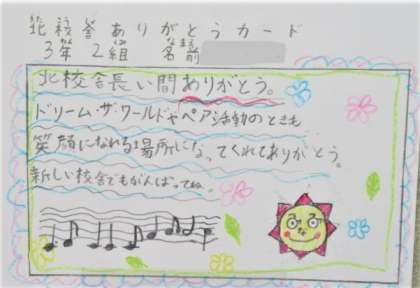 北校舎ありがとうカード
3年2組 名前
北校舎長い間ありがとう。
ドリーム・ザ・ワールドやペア活動のときも
笑顔になれる場所になってくれてありがとう。
新しい校舎でもがんばってね。